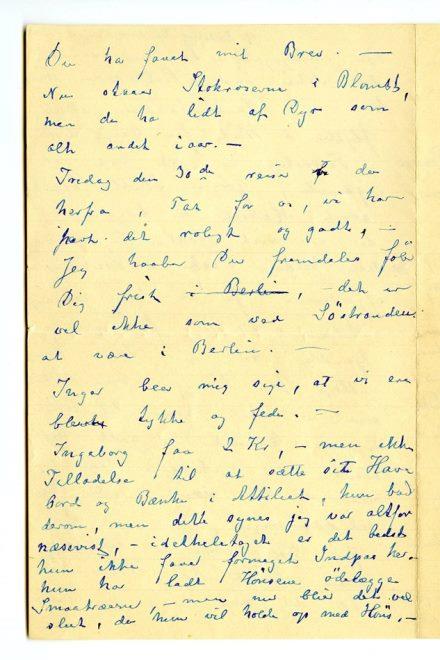 Du har faaet mit Brev. —
Nu staar Stokroserne i Blomst,
men de har lidt af Dyr som
alt andet i aar. —
Tredag den 30de reise de
herfra, Tak for os, vi har
havt det roligt og godt, —
Jeg haaber Du fremdeles føle
Dig frisk i Berlin, — det er
vel ikke som ved Søstranden
at være i Berlin. —
Inger beer mig sige, at vi ere
blevne tykke og fede. —
Ingeborg faa 2 Kr, — men ikke
Tilladelse til at sætte sit Have
Bord og Bænke i Attiliet, hun bad
derom, men dette synes jeg var altfor
næsevist, — idetheletaget er det bedst
hun ikke faaer formeget Indpas her.
hun har ladt Hønsene ødelægge
Smaatræerne, — men nu bliver det vel
slut, da hun vil holde op med Høns, —